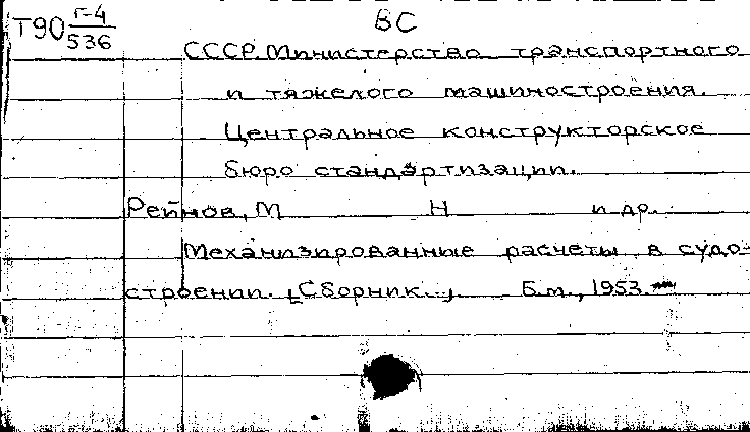 Т90 Г-4/536 ВС
СССР. Министерство транспортного
и тяжелого машиностроения.
Центральное конструкторское
бюро стандартизации.
Рейнов, М Н и др.
Механизированные расчеты в судо-
строении. [Сборник...]. Б.м., 1953.